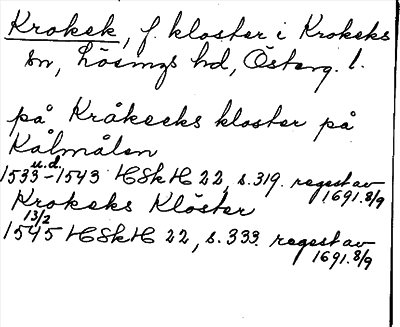 Krokek, f. kloster i Krokeks
sn, Lösings hd, Österg. l.
på Kråkecks kloster på
Kålmålen
u.d.
1533-1543 HSkH 22, s. 319. regest av
1691.8/9
Krokeks Klöster
13/2
1545 HSkH 22, s. 333. regest av
1691.8/9